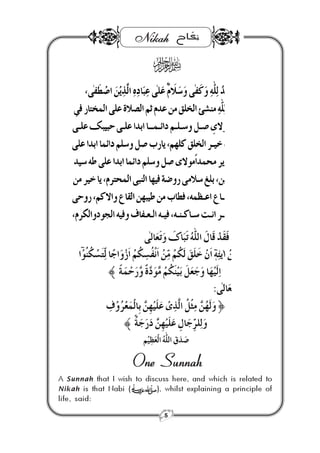 Nikah نكاح
﷽
دُ لِلّٰهِ وَكَفٰى وَسَلَامٌ عَلٰى عِبَادِهِ الَّذِيْنَ اصْطَفٰى،
للهِ منشئ الخلق من عدم ثم الصلاة على المختار في
لاي صل وسلم دائما ابدا على حبيبك على
خير الخلق كلهم، يارب صل وسلم دائما ابدا على
ير محمداً مولاى صل وسلم دائما ابدا على طه سيد
ن، بلغ سلامى روضة فيها النبى المحترم، يا خير من
اع اعظمه، فطاب من طيبهن القاع والاكم، روحى
ر انت ساكنه، فيه العفاف وفيه الجود والكرم،
فَقَدْ قَالَ اللّٰهُ تَبَارَكَ وَتَعَالٰى
نْ اٰيٰتِهٖ اَنْ خَلَقَ لَكُمْ مِّنْ اَنْفُسِكُمْ اَزْوَاجًا لِّتَسْكُنُوْٓا
اِلَيْهَا وَجَعَلَ بَيْنَكُمْ مَّوَدَّةً وَّرَحْمَةً ﴾
عَالٰى:
﴿ وَلَهُنَّ مِثْلُ الَّذِىْ عَلَيْهِنَّ بِالْمَعْرُوْفِ
وَلِلرِّجَالِ عَلَيْهِنَّ دَرَجَةٌ ﴾
صَدَقَ اللّٰهُ الْعَظِيْمُ
One Sunnah
A Sunnah that I wish to discuss here, and which is related to
Nikah is that Nabi (ﷺ), whilst explaining a principle of
life, said:
5